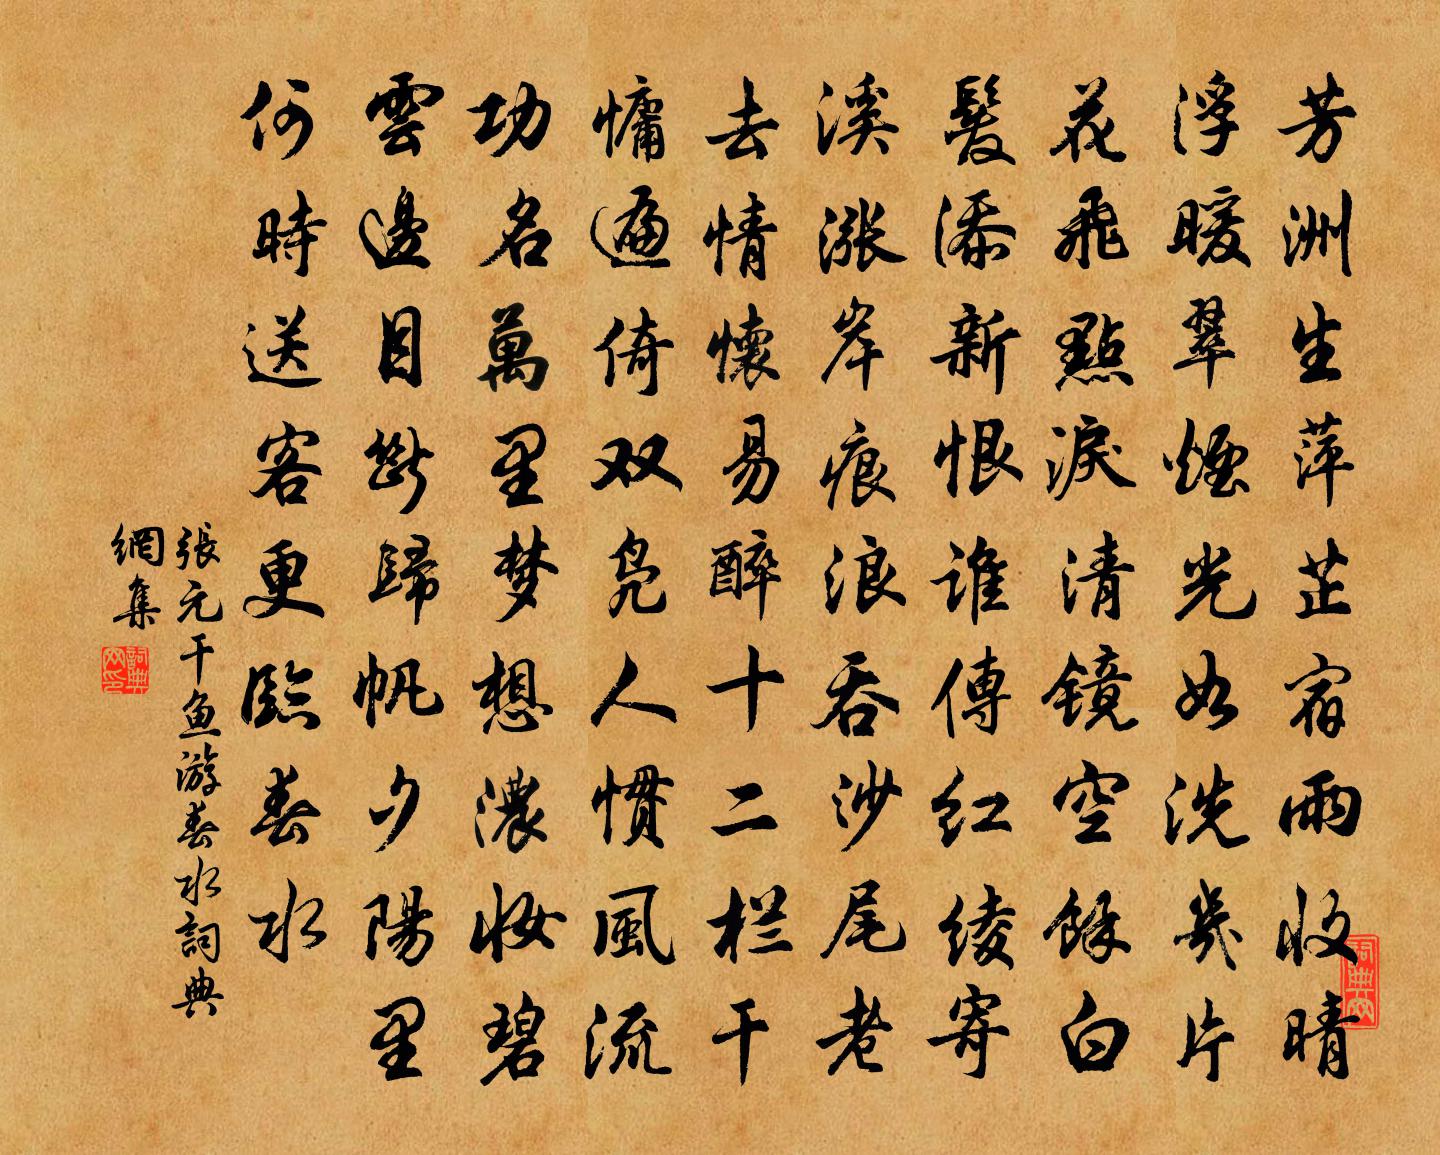 芳洲生萍芷宿雨收晴
浮暖翠煙光如洗幾片
花飛點淚清鏡空餘白
髮添新恨誰傳紅綾寄
溪漲岸痕浪吞沙尾老
去情懷易醉十二栏干
慵遍倚双鳧人慣風流
功名萬里梦想濃妝碧
雲邊目斷歸帆夕陽里
何時送客更臨春水
張元干鱼游春水詞典
網集
詞典网印
詞典网